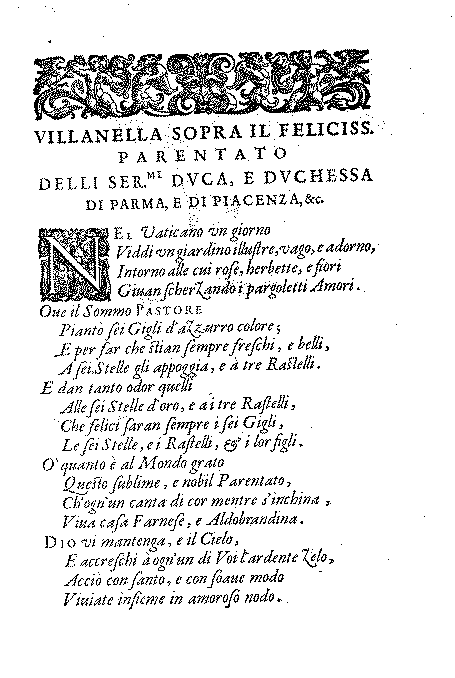 VILLANELLA SOPRA IL FELICISS.
PARENTATO
DELLI SER.ᴹᴱ DVCA, E DVCHESSA
DI PARMA, E DI PIACENZA, &c.
NEL Vaticano vn giorno
Viddi vn giardino illuſtre, vago, e adorno,
Intorno alle cui roſe, herbette, e fiori
Giuan ſcherZando i pargoletti Amori.
Oue il Sommo PASTORE
Piantò ſei Gigli d'aZzurro colore;
E per far che ſtian ſempre freſchi, e belli,
A ſei Stelle gli appoggia, e à tre Raſtelli.
E dan tanto odor quelli
Alle ſei Stelle d'oro, e ai tre Raſtelli,
Che felici ſaran ſempre i ſei Gigli,
Le ſei Stelle, e i Raſtelli, & i lor figli.
O' quanto è al Mondo grato
Queſto ſublime, e nobil Parentato,
Ch'ogn'un canta di cor mentre s'inchina,
Viua caſa Farneſe, e Aldobrandina.
DIO vi mantenga, e il Cielo,
E accreſchi à ogn'un di Voi l'ardente Zelo,
Acciò con ſanto, e con ſoaue modo
Viuiate inſieme in amoroſo nodo.